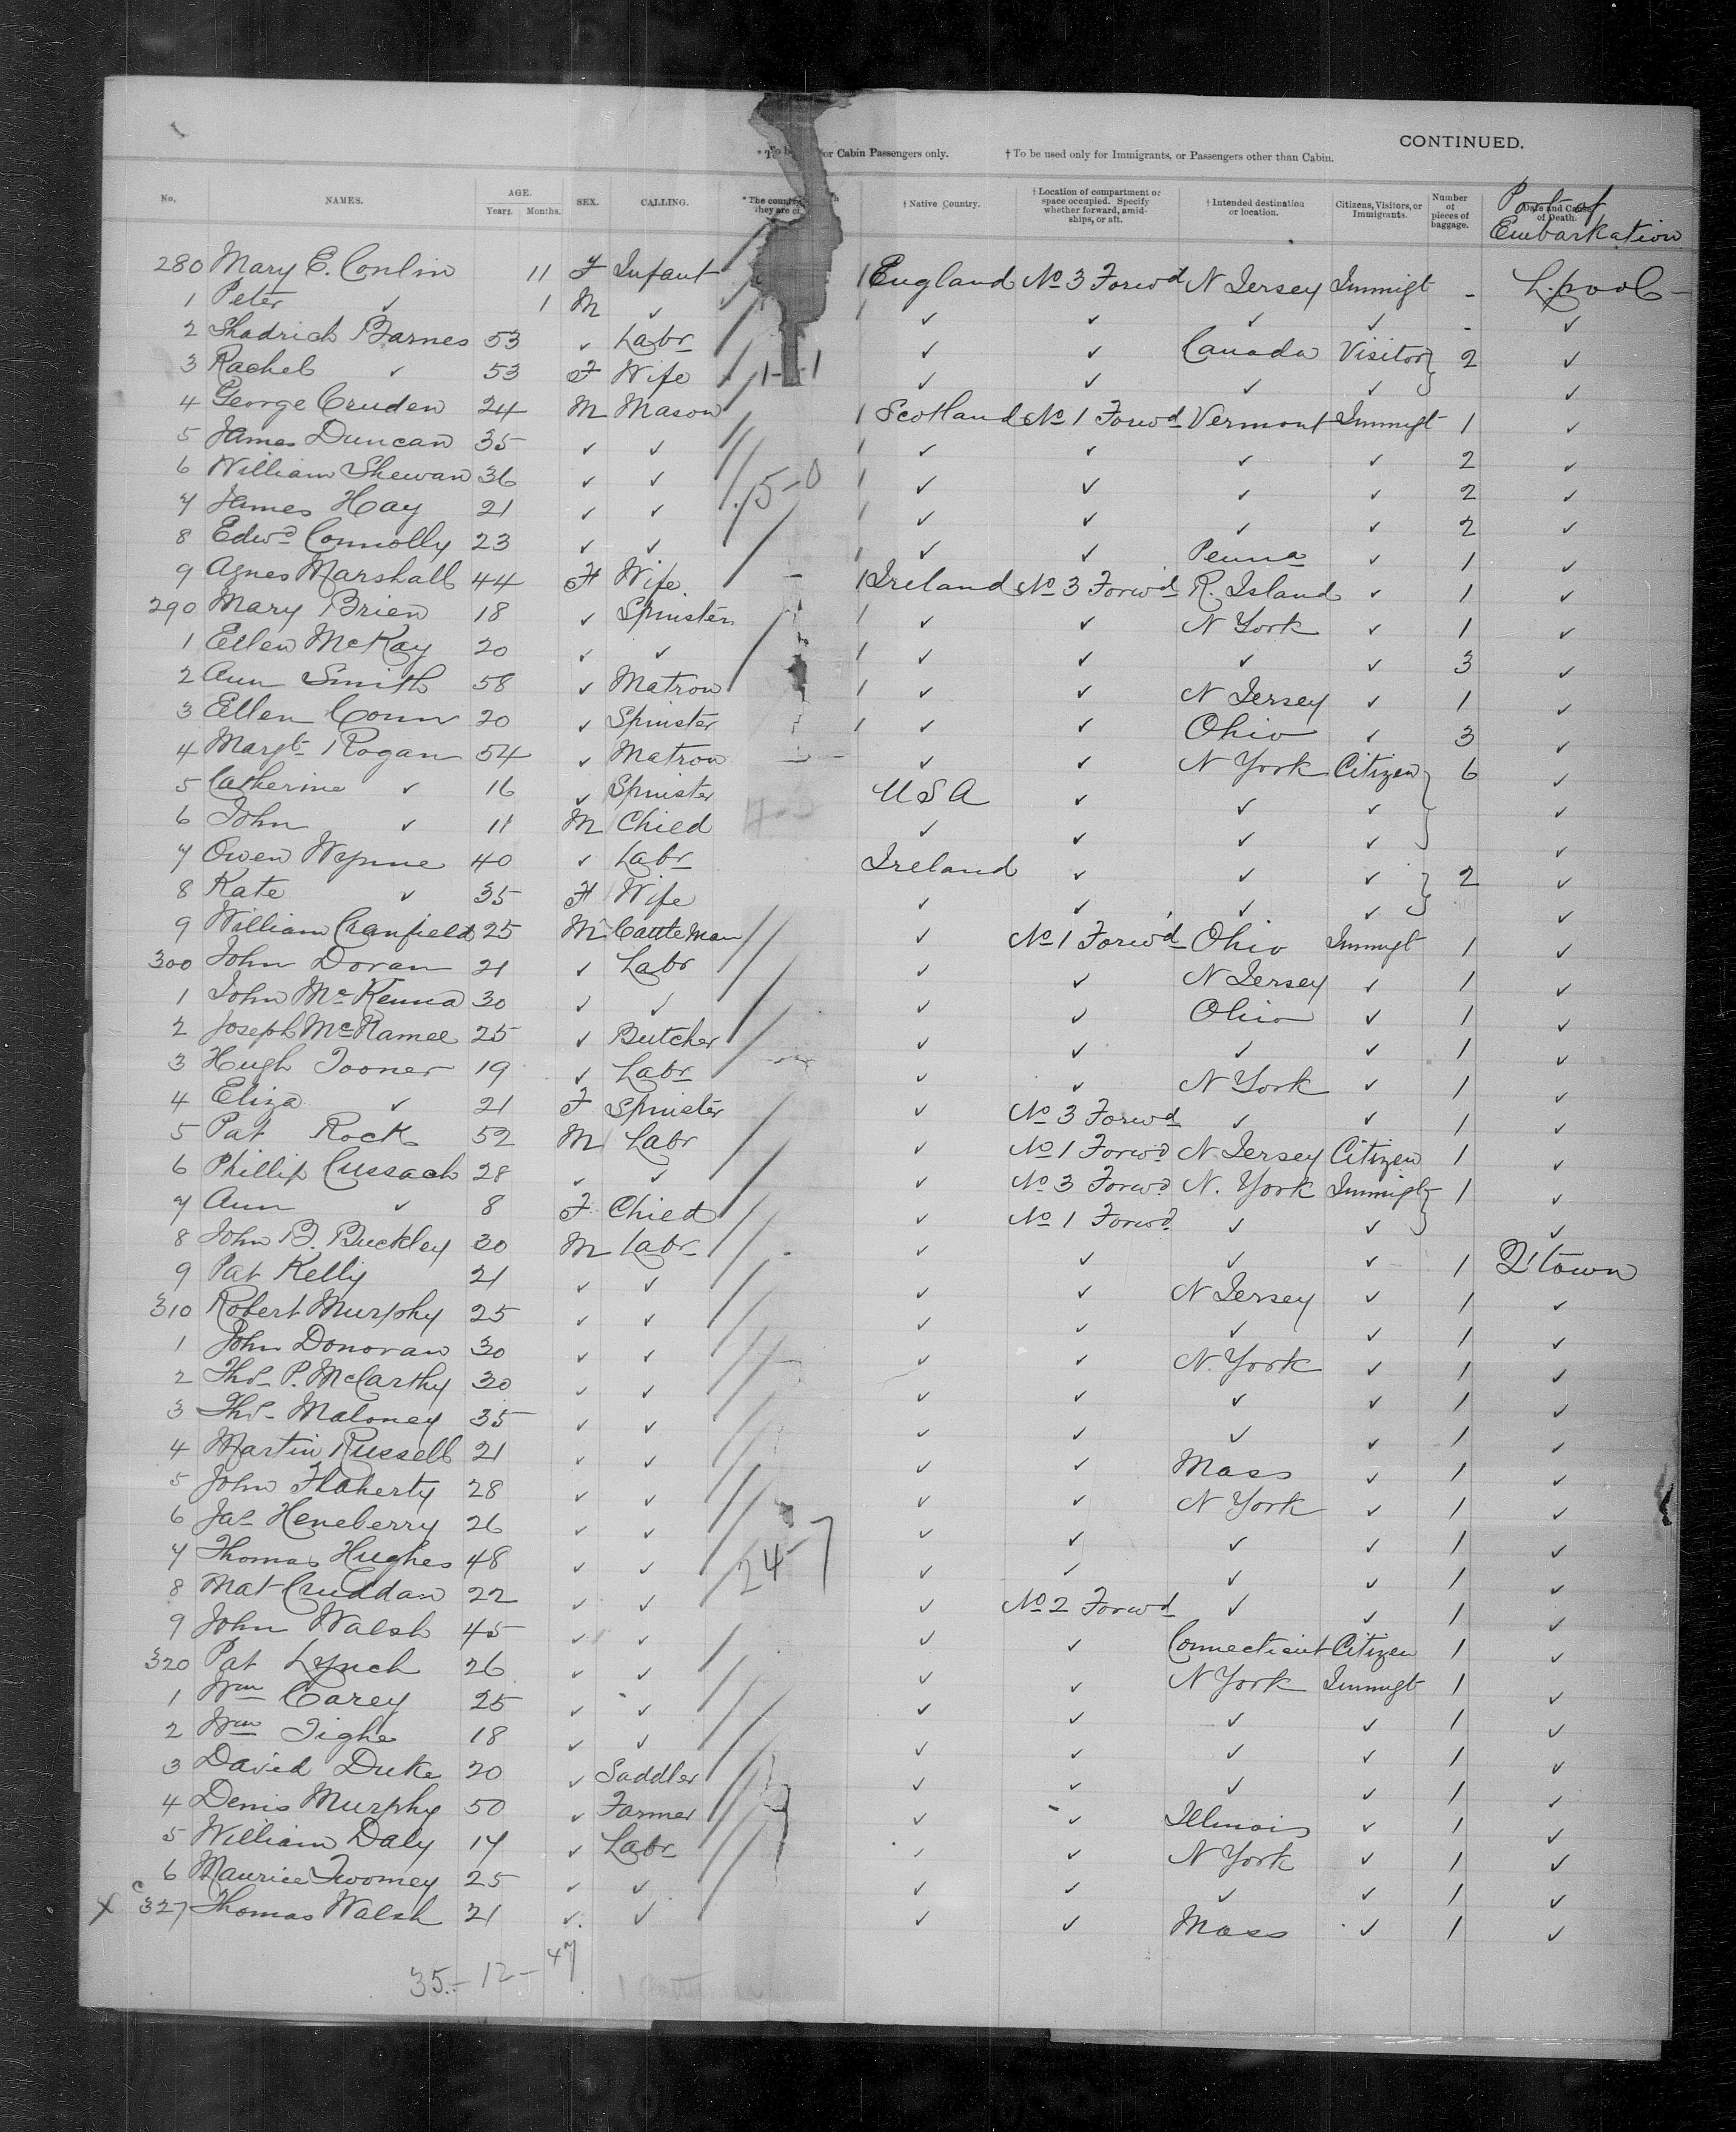 CONTINUED.
* To be or Cabin Passengers only. † To be used only for Immigrants, or Passengers other than Cabin.
No. NAMES. AGE. Years. Months. SEX. CALLING. * The country they are † Native Country. † Location of compartment or space occupied. Specify whether forward, amidships, or aft. † Intended destination or location. Citizens, Visitors, or Immigrants. Number of pieces of baggage. Date and Cause of Death. Port of Embarkation
280 Mary E. Conlin 11 F Infant 1 England No 3 Forwd N Jersey Immigt - L.pool
1 Peter ✓ 1 M ✓ 1 ✓ ✓ ✓ ✓ - ✓
2 Shadrich Barnes 53 ✓ Labr ✓ ✓ Canada Visitor } 2 ✓
3 Rachel ✓ 53 F Wife 1-1 ✓ ✓ ✓ ✓ ✓
4 George Cruden 24 M Mason 1 Scotland No 1 Forwd Vermont Immigt 1 ✓
5 James Duncan 35 ✓ ✓ 1 ✓ ✓ ✓ ✓ 2 ✓
6 William Shewan 36 ✓ ✓ 15-0 1 ✓ ✓ ✓ ✓ 2 ✓
7 James Hay 21 ✓ ✓ 1 ✓ ✓ ✓ ✓ 2 ✓
8 Edwd Connolly 23 ✓ ✓ 1 ✓ ✓ Penna ✓ 1 ✓
9 Agnes Marshall 44 F Wife 1 Ireland No 3 Forwd R. Island ✓ 1 ✓
290 Mary Brien 18 ✓ Spinster 1 ✓ ✓ N York ✓ 1 ✓
1 Ellen McKay 20 ✓ ✓ 1 ✓ ✓ ✓ ✓ 3 ✓
2 Ann Smith 58 ✓ Matron 1 ✓ ✓ N Jersey ✓ 1 ✓
3 Ellen Conn 20 ✓ Spinster 1 ✓ ✓ Ohio ✓ 3 ✓
4 Margt Rogan 54 ✓ Matron ✓ ✓ N York Citizen } 6 ✓
5 Catherine ✓ 16 ✓ Spinster U S A ✓ ✓ ✓ ✓
6 John ✓ 11 M Child ✓ ✓ ✓ ✓ ✓
7 Owen Wynne 40 ✓ Labr Ireland ✓ ✓ ✓ } 2 ✓
8 Kate ✓ 35 F Wife ✓ ✓ ✓ ✓ ✓
9 William Cranfield 25 M Cattle Man ✓ No 1 Forwd Ohio Immigt 1 ✓
300 John Doran 21 ✓ Labr ✓ ✓ N Jersey ✓ 1 ✓
1 John McKenna 30 ✓ ✓ ✓ ✓ Ohio ✓ 1 ✓
2 Joseph McKamee 25 ✓ Butcher ✓ ✓ ✓ ✓ 1 ✓
3 Hugh Tooner 19 ✓ Labr ✓ ✓ N York ✓ 1 ✓
4 Eliza ✓ 21 F Spinster ✓ No 3 Forwd ✓ ✓ 1 ✓
5 Pat Rock 52 M Labr ✓ No 1 Forwd N Jersey Citizen 1 ✓
6 Phillip Cussach 28 ✓ ✓ ✓ No 3 Forwd N. York Immigt } 1 ✓
7 Ann ✓ 8 F Child ✓ No 1 Forwd ✓ ✓ ✓
8 John B. Buckley 30 M Labr ✓ ✓ ✓ ✓ 1 Q'town
9 Pat Kelly 21 ✓ ✓ ✓ ✓ N Jersey ✓ 1 ✓
310 Robert Murphy 25 ✓ ✓ ✓ ✓ ✓ ✓ 1 ✓
1 John Donovan 30 ✓ ✓ ✓ ✓ N. York ✓ 1 ✓
2 Thos P. McCarthy 30 ✓ ✓ ✓ ✓ ✓ ✓ 1 ✓
3 Thos Maloney 35 ✓ ✓ ✓ ✓ ✓ ✓ 1 ✓
4 Martin Russell 21 ✓ ✓ ✓ ✓ Mass ✓ 1 ✓
5 John Flaherty 28 ✓ ✓ ✓ ✓ N York ✓ 1 ✓
6 Jas Heneberry 26 ✓ ✓ ✓ ✓ ✓ ✓ 1 ✓
7 Thomas Hughes 48 ✓ ✓ 24-7 ✓ ✓ ✓ ✓ 1 ✓
8 Mat Cruddan 22 ✓ ✓ ✓ No 2 Forwd ✓ ✓ 1 ✓
9 John Walsh 45 ✓ ✓ ✓ ✓ Connecticut Citizen 1 ✓
320 Pat Lynch 26 ✓ ✓ ✓ ✓ N York Immigt 1 ✓
1 Wm Carey 25 ✓ ✓ ✓ ✓ ✓ ✓ 1 ✓
2 Wm Tighe 18 ✓ ✓ ✓ ✓ ✓ ✓ 1 ✓
3 David Duke 20 ✓ Saddler ✓ ✓ ✓ ✓ 1 ✓
4 Denis Murphy 50 ✓ Farmer ✓ ✓ Illinois ✓ 1 ✓
5 William Daly 17 ✓ Labr ✓ ✓ N York ✓ 1 ✓
6 Maurice Twomey 25 ✓ ✓ ✓ ✓ ✓ ✓ 1 ✓
X c 327 Thomas Walsh 21 ✓ ✓ ✓ ✓ Mass ✓ 1 ✓
35.-12-47